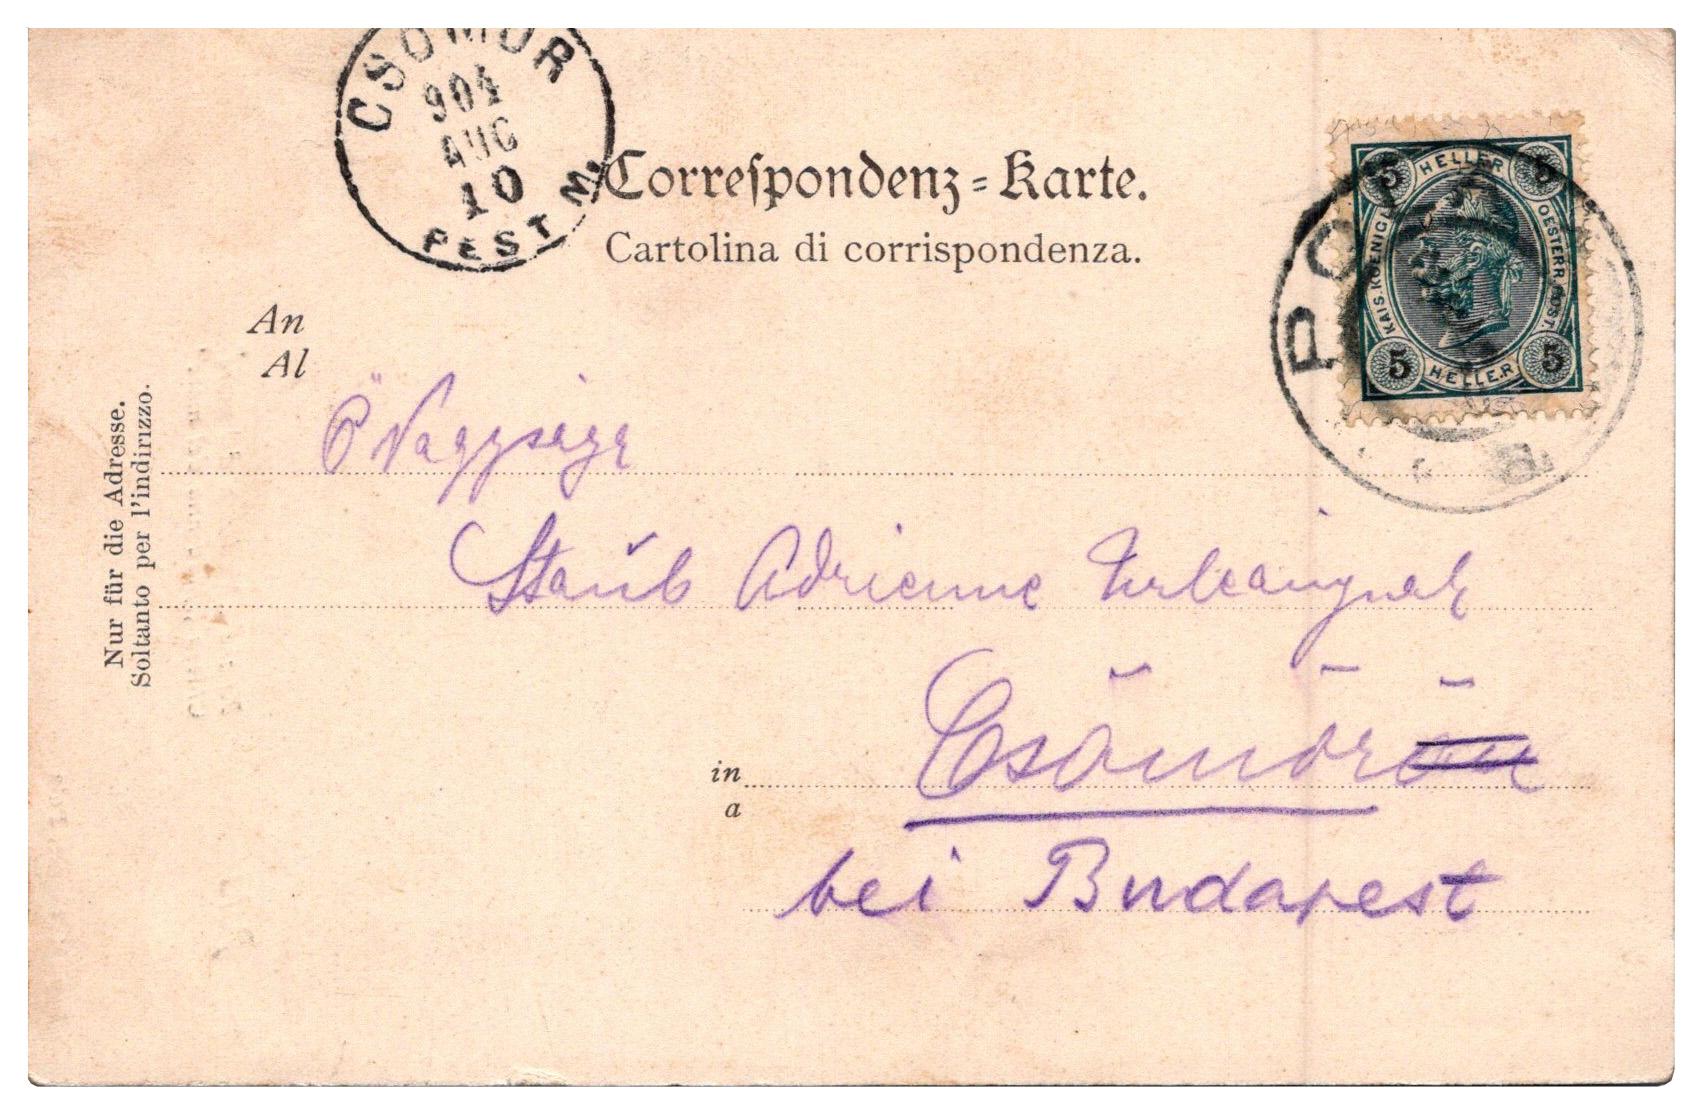 CSÖMÖR
904
AUG
10
PEST M.
Correſpondenz=Karte.
Cartolina di corrispondenza.
5 HELLER 5
KAIS. KOENIGL.
OESTERR. POST.
5 HELLER 5
PO
An
Al
Nur für die Adresse.
Soltanto per l'indirizzo.
Ő Nagysága
Staub Adrienne
in
a
Csömör
bei Budapest